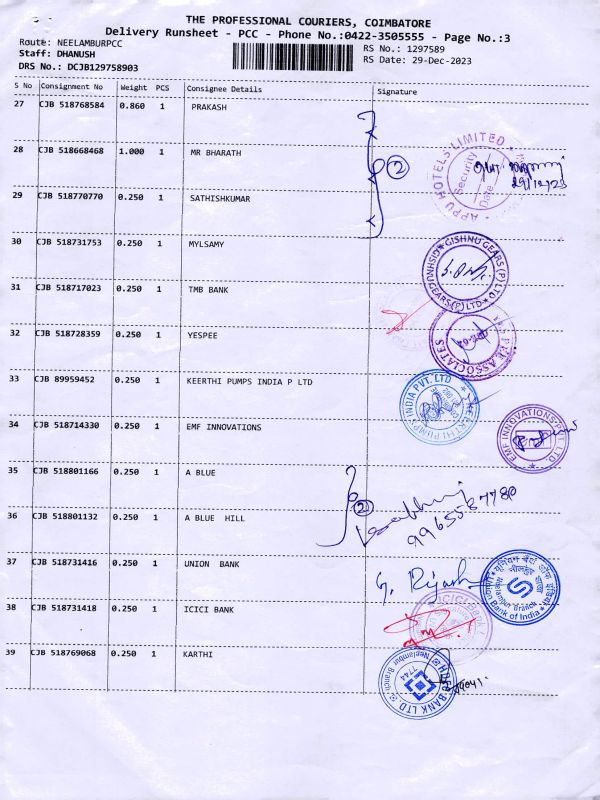 THE PROFESSIONAL COURIERS, COIMBATORE
Delivery Runsheet - PCC - Phone No.:0422-3505555 - Page No.:3
Route: NEELAMBURPCC RS No.: 1297589
Staff: DHANUSH RS Date: 29-Dec-2023
DRS No.: DCJB129758903
S No Consignment No Weight PCS Consignee Details Signature
27 CJB 518768584 0.860 1 PRAKASH
28 CJB 518668468 1.000 1 MR BHARATH
2
APPU HOTELS LIMITED
Security
Date
29/12/23
29 CJB 518770770 0.250 1 SATHISHKUMAR
30 CJB 518731753 0.250 1 MYLSAMY
GISHNU GEARS (P) LTD
GISHNU GEARS (P) LTD
31 CJB 518717023 0.250 1 TMB BANK
32 CJB 518728359 0.250 1 YESPEE
ASSOCIATES
33 CJB 89959452 0.250 1 KEERTHI PUMPS INDIA P LTD
KEERTHI PUMPS INDIA PVT. LTD
34 CJB 518714330 0.250 1 EMF INNOVATIONS
EMF INNOVATIONS PVT. LTD.
35 CJB 518801166 0.250 1 A BLUE
2
36 CJB 518801132 0.250 1 A BLUE HILL
37 CJB 518731416 0.250 1 UNION BANK
यूनियन बैंक ऑफ इंडिया
Neelambur Branch
Union Bank of India
38 CJB 518731418 0.250 1 ICICI BANK
ICICI BANK
39 CJB 518769068 0.250 1 KARTHI
HDFC BANK LTD.
7744
Neelambur Branch